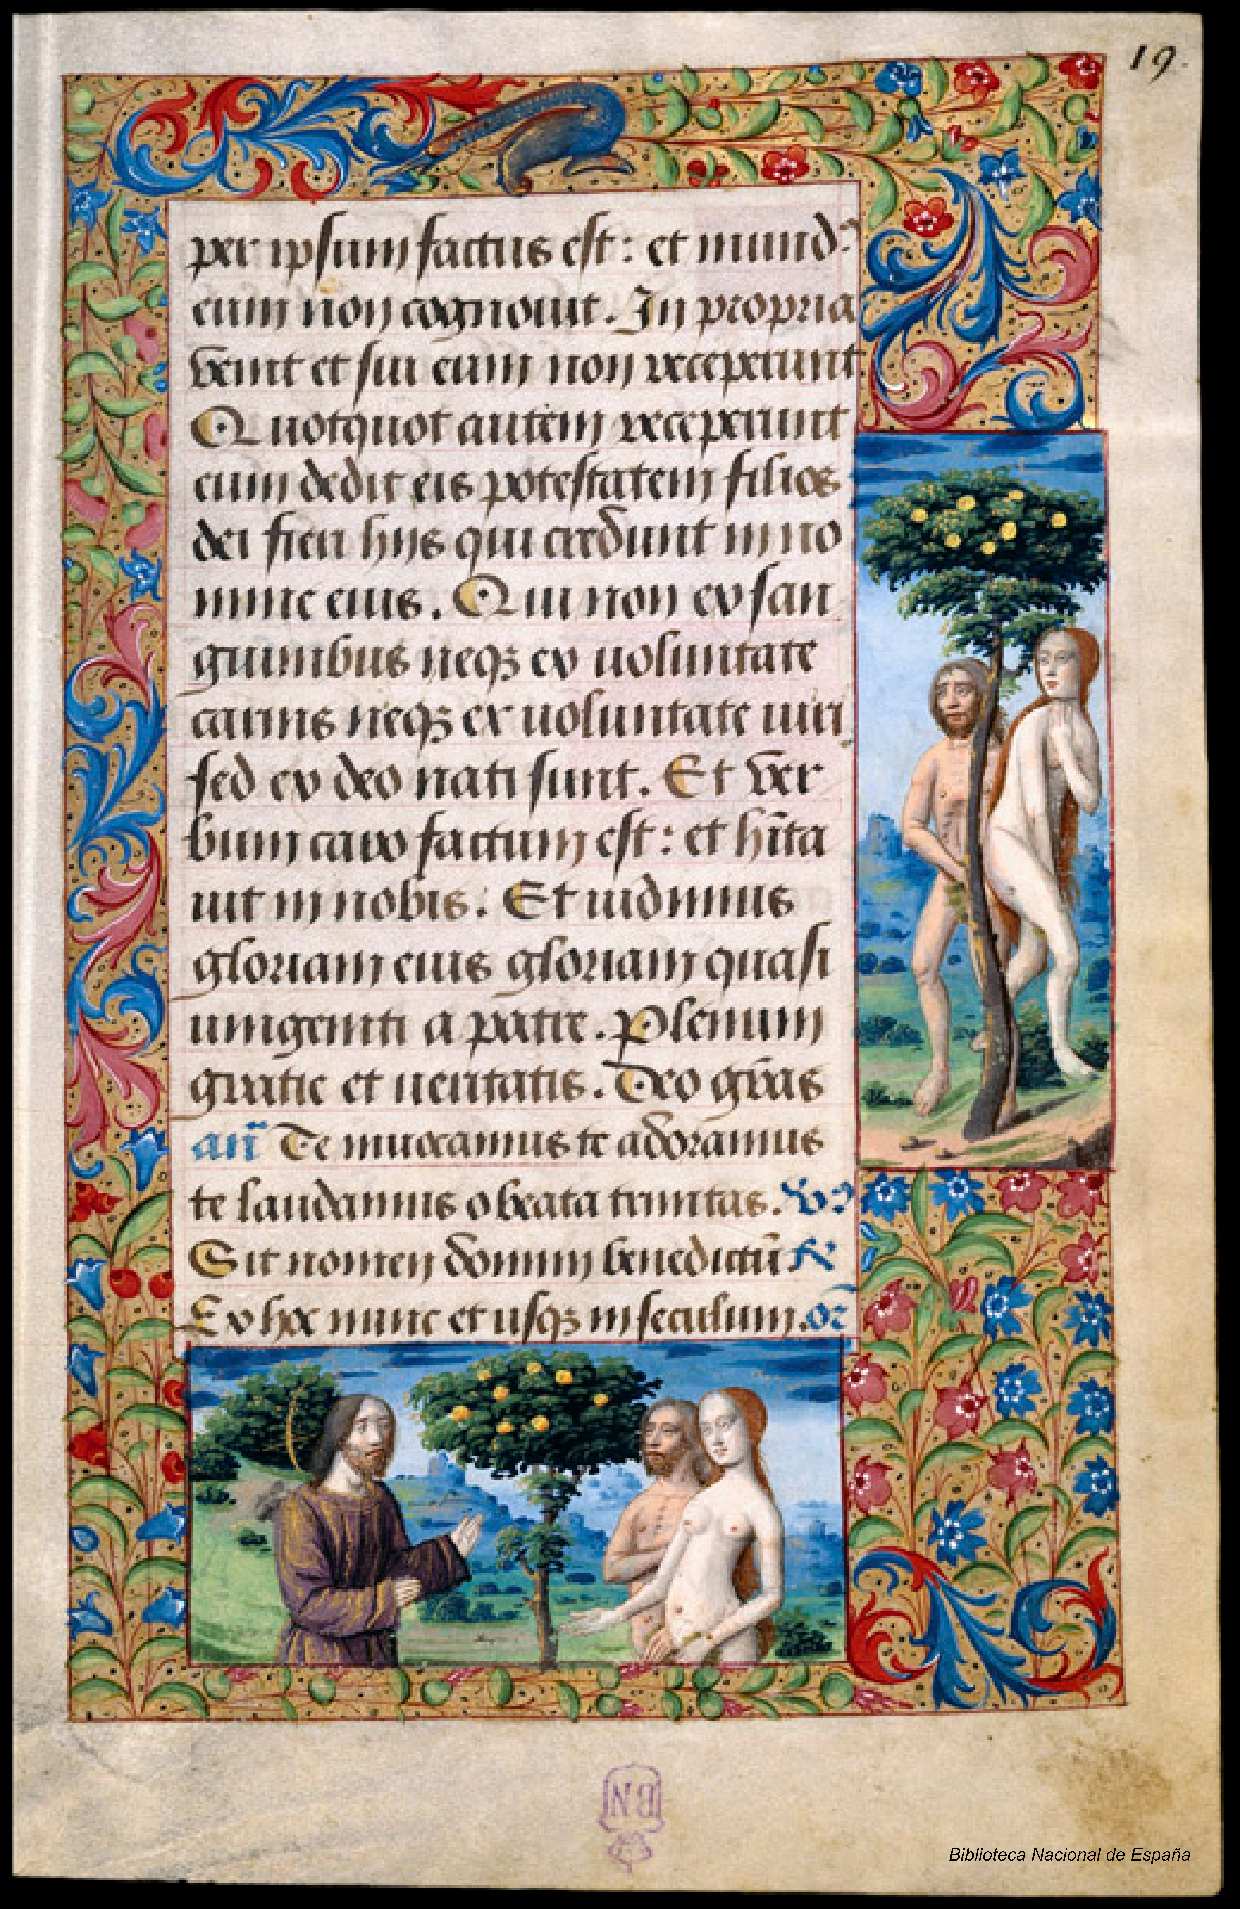 19.
per ipsum factus est: et mundꝰ
eum non cognouit. In propria
venit et sui eum non receperunt
Quotquot autem receperunt
eum dedit eis potestatem filios
dei fieri hijs qui credunt in no
mine eius. Qui non ex san
guinibus neqꝫ ex uoluntate
carnis neqꝫ ex uoluntate uiri
sed ex deo nati sunt. Et ver
bum caro factum est: et hīta
uit in nobis: Et uidimus
gloriam eius gloriam quasi
unigeniti a patre. Plenum
gratie et ueritatis. Deo grās
añ Te inuocamus te adoramus
te laudamus o beata trinitas. v̉
Sit nomen domini benedictū R̷
Ex hoc nunc et usqꝫ in seculum. or̄
BN
Biblioteca Nacional de España